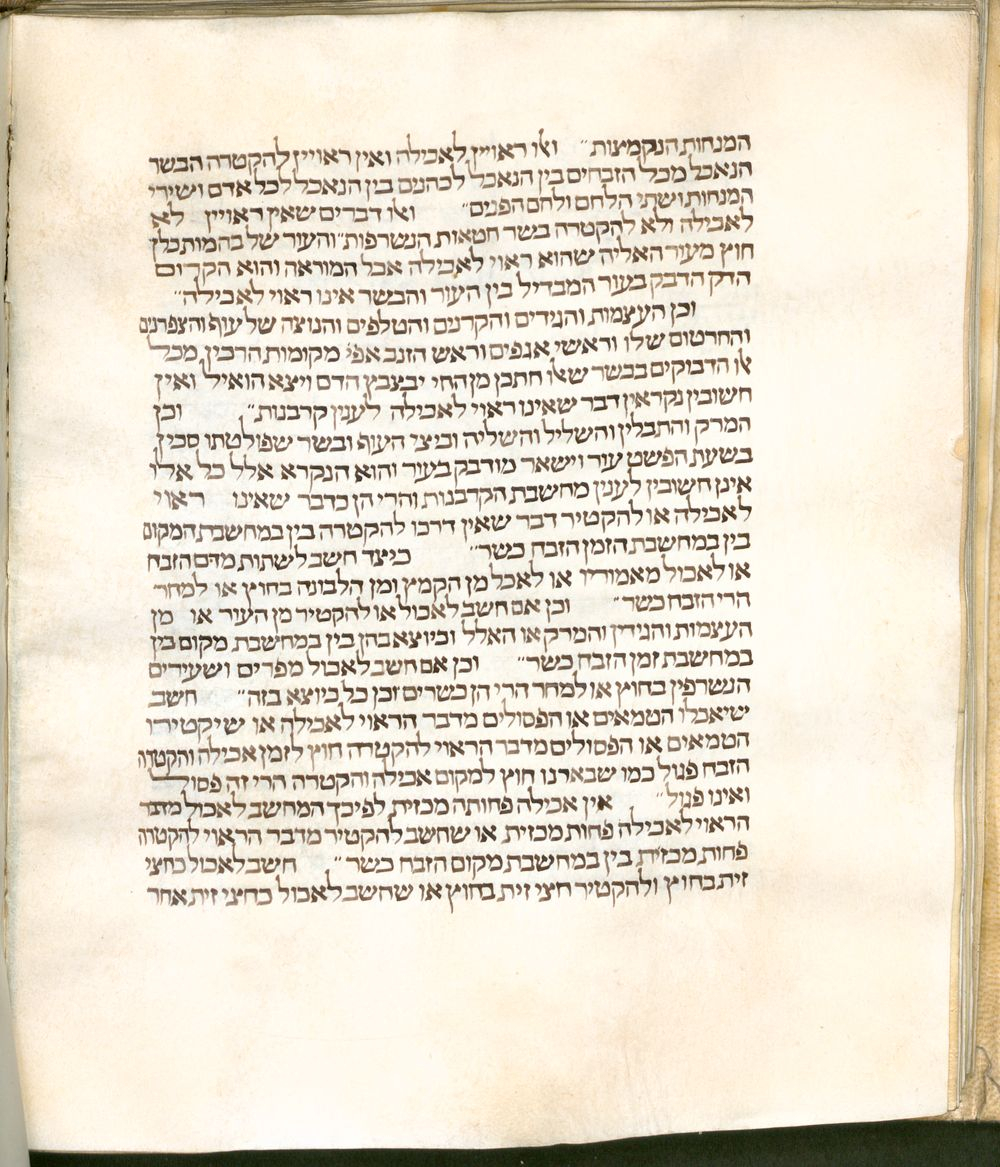 המנחות הנקמצות״ ואלו ראויין לאכילה ואין ראויין להקטרה הבשר
הנאכל מכל הזבחים בין הנאכל לכהנים בין הנאכל לכל אדם ושירי
המנחות ושתי הלחם ולחם הפנים״ ואלו דברים שאין ראויין לא
לאכילה ולא להקטרה בשר חטאות הנשרפות״ והעור של בהמות כלן
חוץ מעור האליה שהוא ראוי לאכילה אבל המוראה והוא הקרום
הדק הדבק בעור המבדיל בין העור והבשר אינו ראוי לאכילה״
וכן העצמות והגידים והקרנים והטלפים והנוצה של עוף והצפרנים
והחרטום שלו וראשי אגפים וראש הזנב אפי׳ מקומות הרכין מכל
אלו הדבוקים בבשר שאלו חתכן מן החי יבצבץ הדם ויצא הואיל ואין
חשובין נקראין דבר שאינו ראוי לאכילה לענין קרבנות״ וכן
המרק והתבלין והשליל והשליה וביצי העוף ובשר שפולטתו סכין
בשעת הפשט עור וישאר מודבק בעור והוא הנקרא אלל כל אלו
אינן חשובין לענין מחשבת הקרבנות והרי הן כדבר שאינו ראוי
לאכילה או להקטיר דבר שאין דרכו להקטרה בין במחשבת המקום
בין במחשבת הזמן הזבח כשר״ כיצד חשב לשתות מדם הזבח
או לאכול מאמוריו או לאכל מן הקמץ ומן הלבונה בחוץ או למחר
הרי הזבח כשר״ וכן אם חשב לאכול או להקטיר מן העור או מן
העצמות והגידין והמרק או האלל וכיוצא בהן בין במחשבת מקום בין
במחשבת זמן הזבח כשר״ וכן אם חשב לאכול מפרים ושעירים
הנשרפין בחוץ או למחר הרי הן כשרים וכן כל כיוצא בזה״ חשב
שיאכלו הטמאים או הפסולים מדבר הראוי לאכילה או שיקטירו
הטמאים או הפסולים מדבר הראוי להקטרה חוץ לזמן אכילה והקטרה
הזבח פגול כמו שבארנו חוץ למקום אכילה והקטרה הרי זה פסול
ואינו פגול״ אין אכילה פחותה מכזית לפיכך המחשב לאכול מדבר
הראוי לאכילה פחות מכזית או שחשב להקטיר מדבר הראוי להקטרה
פחות מכזית בין במחשבת מקום הזבח כשר״ חשב לאכול כחצי
זית בחוץ ולהקטיר חצי זית בחוץ או שחשב לאכול כחצי זית אחר